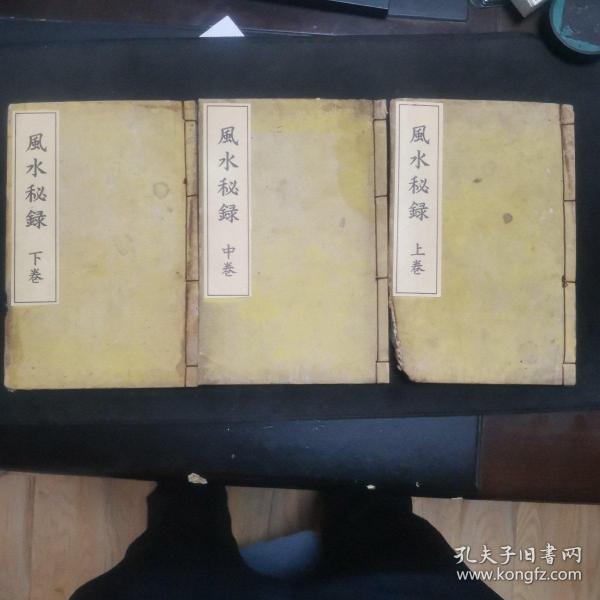 風水秘録
上巻
風水秘録
中巻
風水秘録
下巻
孔夫子旧書网
www.kongfz.com